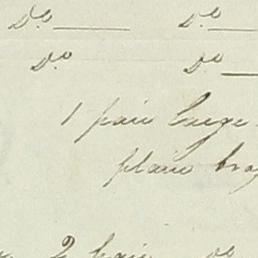 Do. Do.
Do Do
1 pair large
plain bra
2 pair do